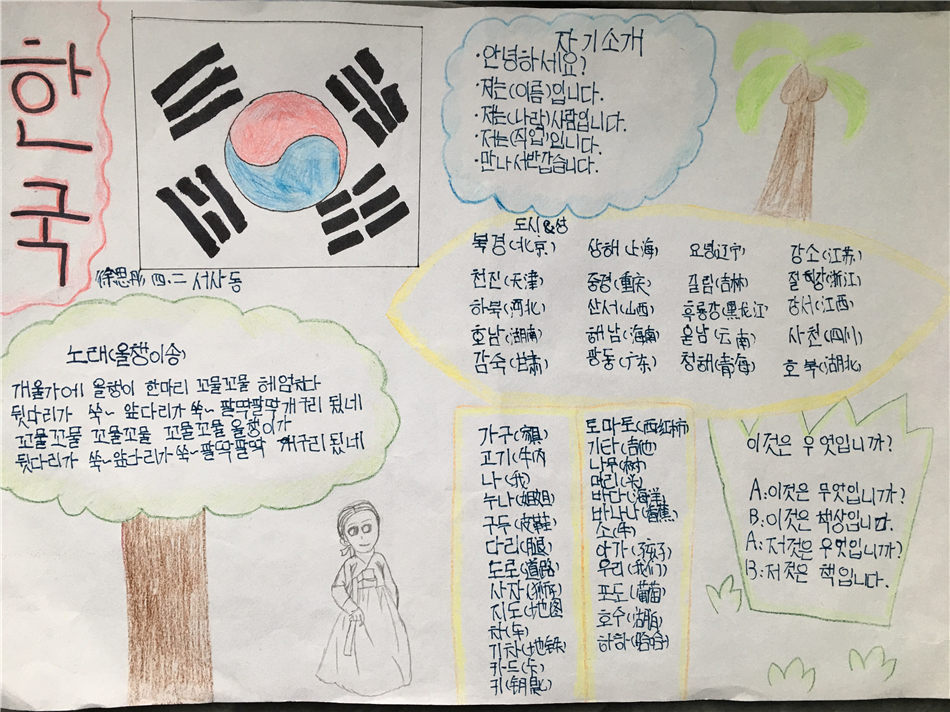 한국
자기소개
·안녕하세요?
·저는(이름)입니다.
·저는(나라)사람입니다.
·저는(직업)입니다.
·만나서반갑습니다.
徐思彤 四.二 서사동
도시&성
북경(北京) 상해(上海) 요녕(辽宁) 강소(江苏)
천진(天津) 중경(重庆) 길림(吉林) 절강(浙江)
하북(河北) 산서(山西) 흑룡강(黑龙江) 강서(江西)
호남(湖南) 해남(海南) 운남(云南) 사천(四川)
감숙(甘肃) 광동(广东) 청해(青海) 호북(湖北)
노래(올챙이송)
개울가에 올챙이 한마리 꼬물꼬물 헤엄치다
뒷다리가 쑥~ 앞다리가 쑥~ 팔딱팔딱개구리 됬네
꼬물꼬물 꼬물꼬물 꼬물꼬물 올챙이가
뒷다리가 쑥~앞다리가쑥~팔딱팔딱 개구리 됬네
가구(家具)
고기(牛肉)
나(我)
누나(姐姐)
구두(皮鞋)
다리(腿)
도로(道路)
사자(狮子)
지도(地图
차(车)
기차(地铁)
카드(卡)
키(钥匙)
토마토(西红柿)
기타(吉他)
나무(树)
머리(头)
바다(海洋)
바나나(香蕉)
소(牛)
아가(孩子)
우리(我们)
포도(葡萄)
호수(湖泊)
하하(哈哈)
이것은 무엇입니까?
A:이것은 무엇입니까?
B:이것은 책상입니다.
A:저것은 무엇입니까?
B:저것은 책입니다.